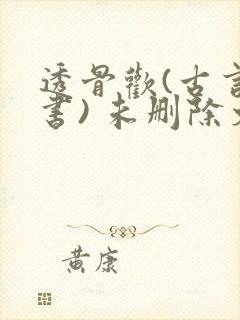 透骨歡(古言
書)未刪除
黃康